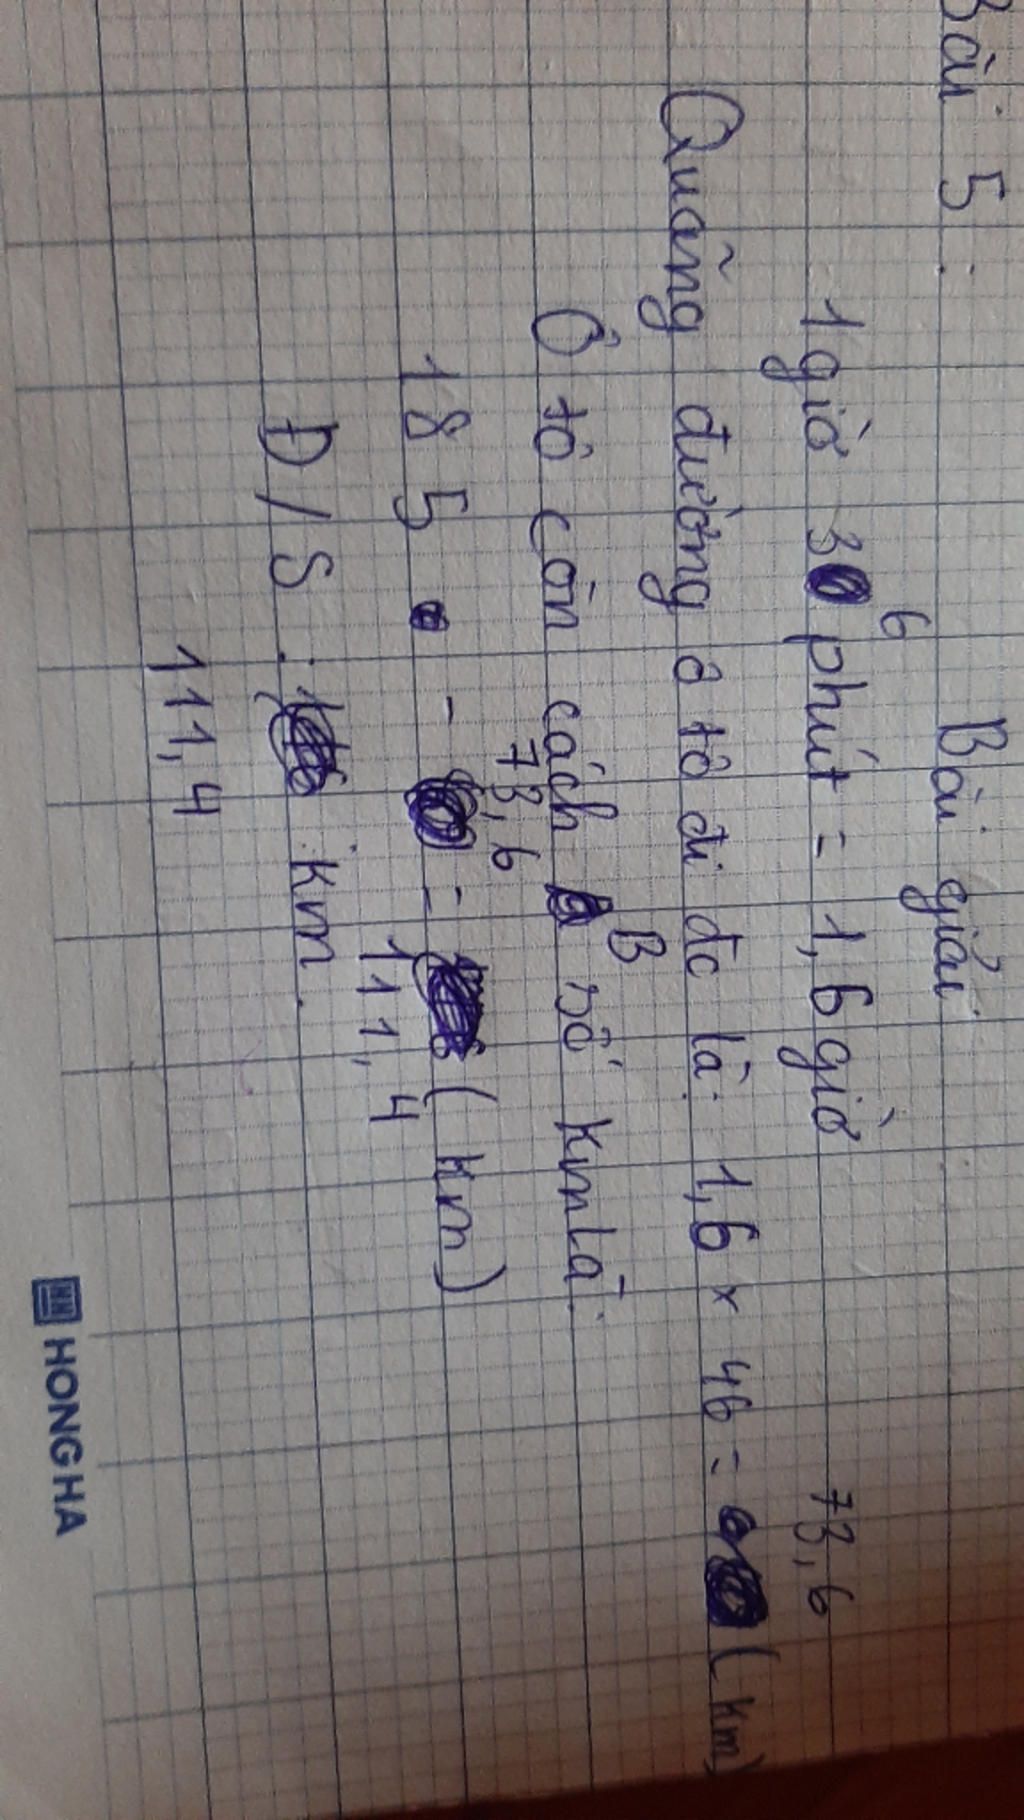 Bài 5 :
Bài giải
1 giờ 36 phút = 1,6 giờ
Quãng đường ô tô đi đc là: 1,6 x 46 = 73,6 (km)
Ô tô còn cách B số km là:
185 - 73,6 = 111,4 (km)
Đ/S : 111,4 km.
HONG HA